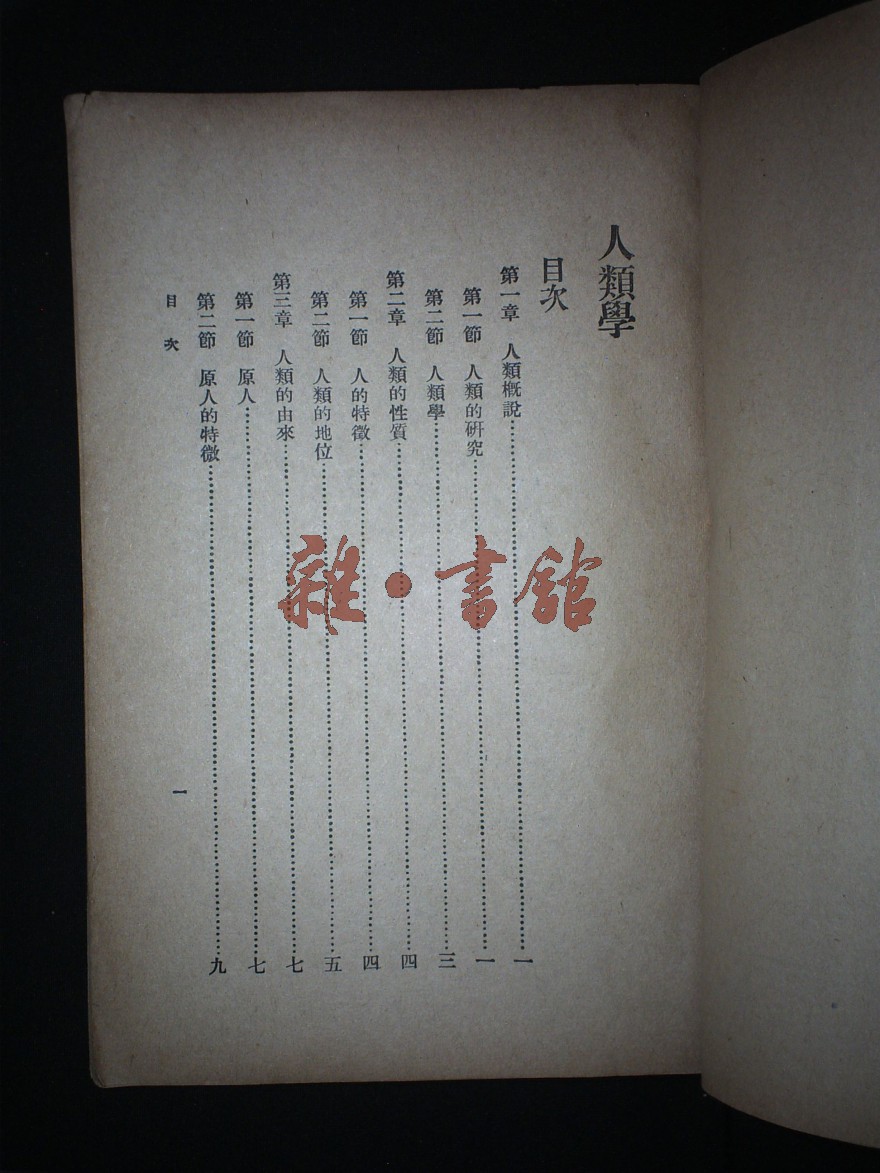 人類學
目次
第一章 人類概說……………一
第一節 人類的研究……………一
第二節 人類學……………三
第二章 人類的性質……………四
第一節 人的特徵……………四
第二節 人類的地位……………五
第三章 人類的由來……………七
第一節 原人……………七
第二節 原人的特徵……………九
目次
一
雜·書館